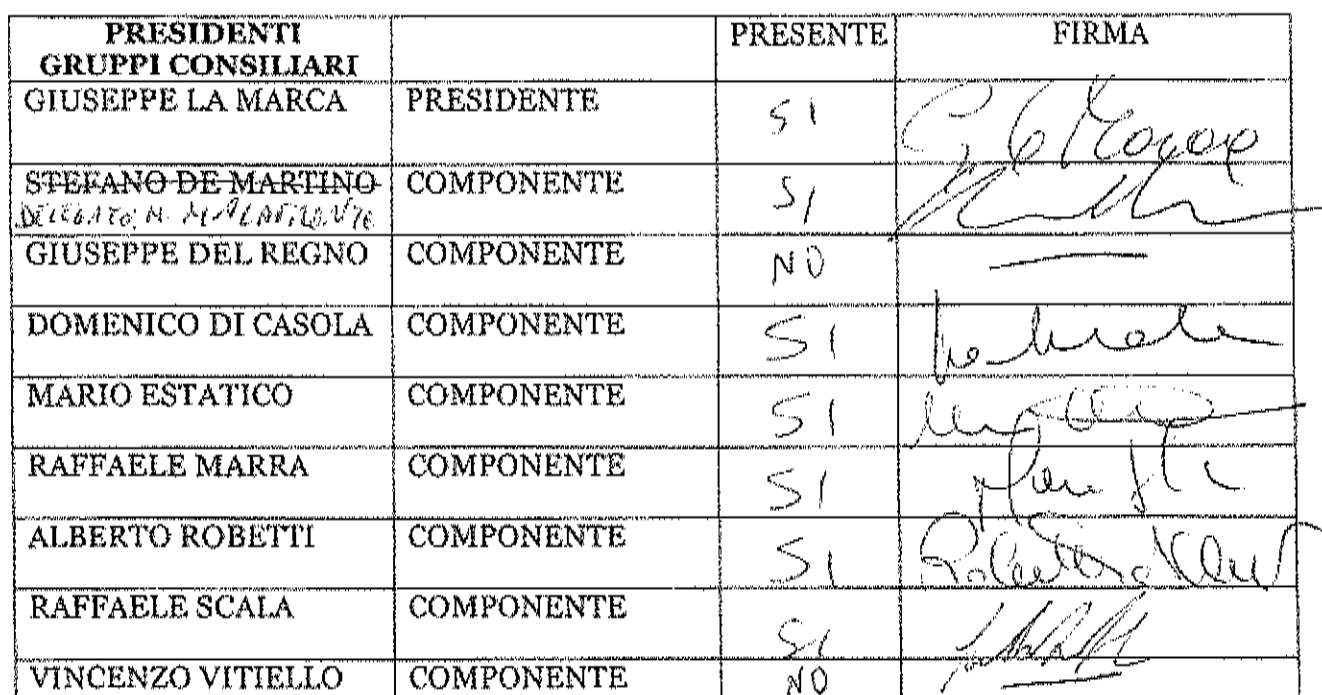 PRESIDENTI GRUPPI CONSILIARI PRESENTE FIRMA
GIUSEPPE LA MARCA PRESIDENTE SI
STEFANO DE MARTINO COMPONENTE SI
DELEGATO
GIUSEPPE DEL REGNO COMPONENTE NO
DOMENICO DI CASOLA COMPONENTE SI
MARIO ESTATICO COMPONENTE SI
RAFFAELE MARRA COMPONENTE SI
ALBERTO ROBETTI COMPONENTE SI
RAFFAELE SCALA COMPONENTE SI
VINCENZO VITIELLO COMPONENTE NO